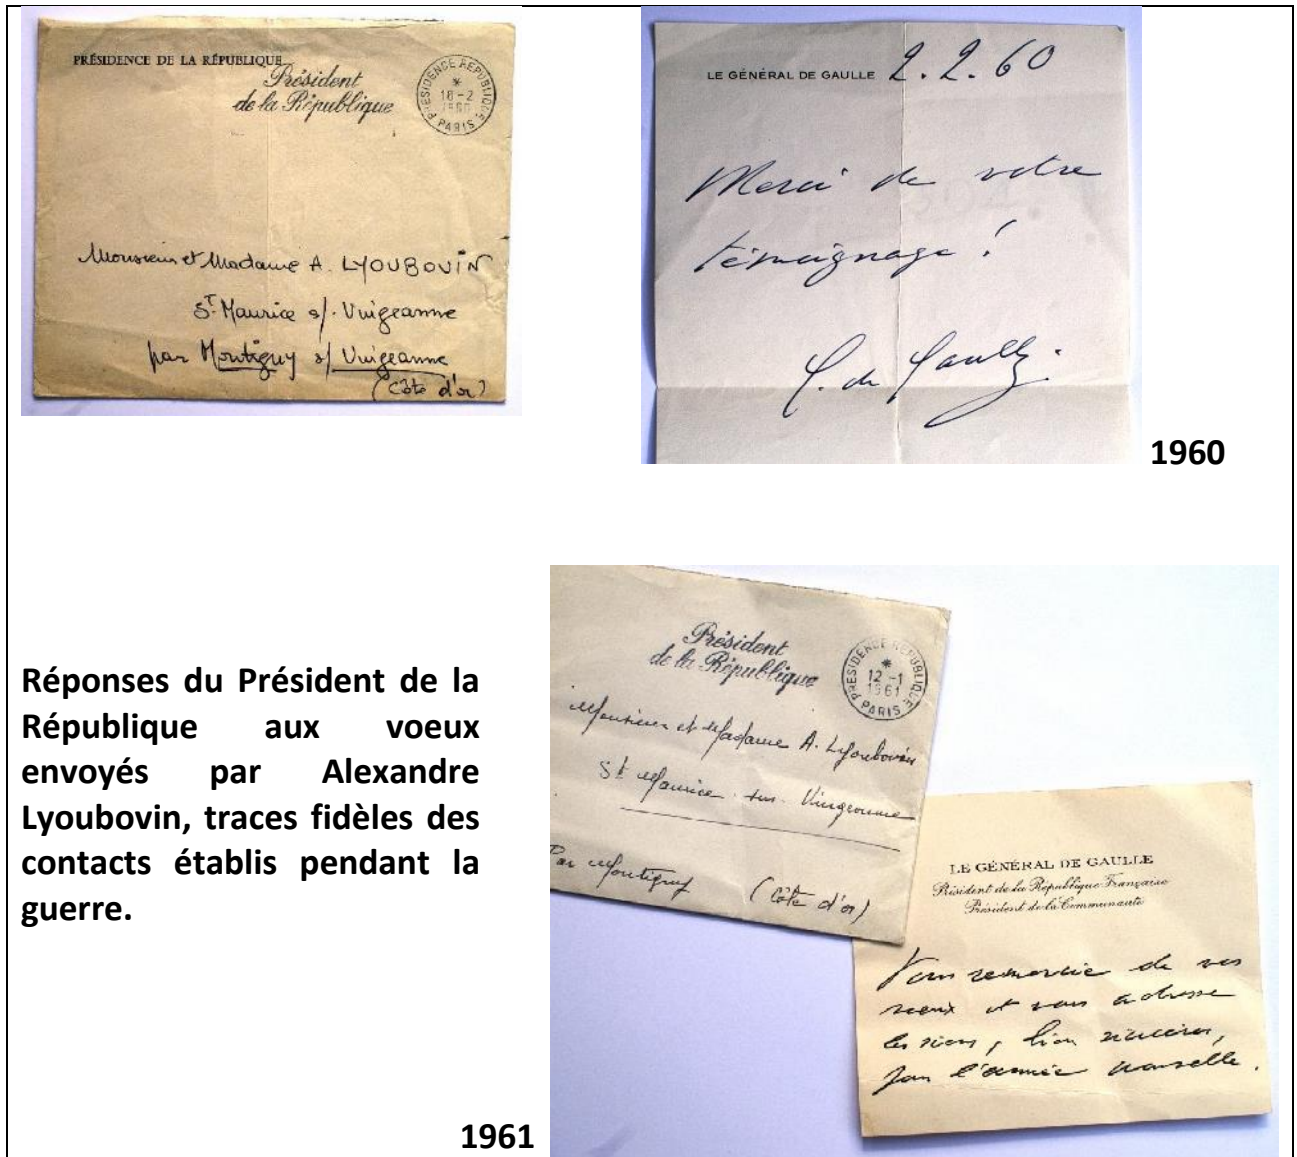 PRÉSIDENCE DE LA RÉPUBLIQUE
Président
de la République
PRÉSIDENCE RÉPUBLIQUE
18-2
1960
PARIS
Monsieur et Madame A. LYOUBOVIN
St Maurice s/. Vingeanne
par Montigny s/ Vingeanne
(Côte d'or)
LE GÉNÉRAL DE GAULLE 2.2.60
Merci de votre
témoignage !
C. de Gaulle.
1960
Réponses du Président de la
République aux voeux
envoyés par Alexandre
Lyoubovin, traces fidèles des
contacts établis pendant la
guerre.
Président
de la République
PRÉSIDENCE RÉPUBLIQUE
12-1
1961
PARIS
Monsieur et Madame A. Lyoubovin
St Maurice - sur - Vingeanne
Par Montigny (Côte d'or)
LE GÉNÉRAL DE GAULLE
Président de la République Française
Président de la Communauté
Vous remercie de vos
voeux et vous adresse
les siens, bien sincères,
pour l'année nouvelle.
1961